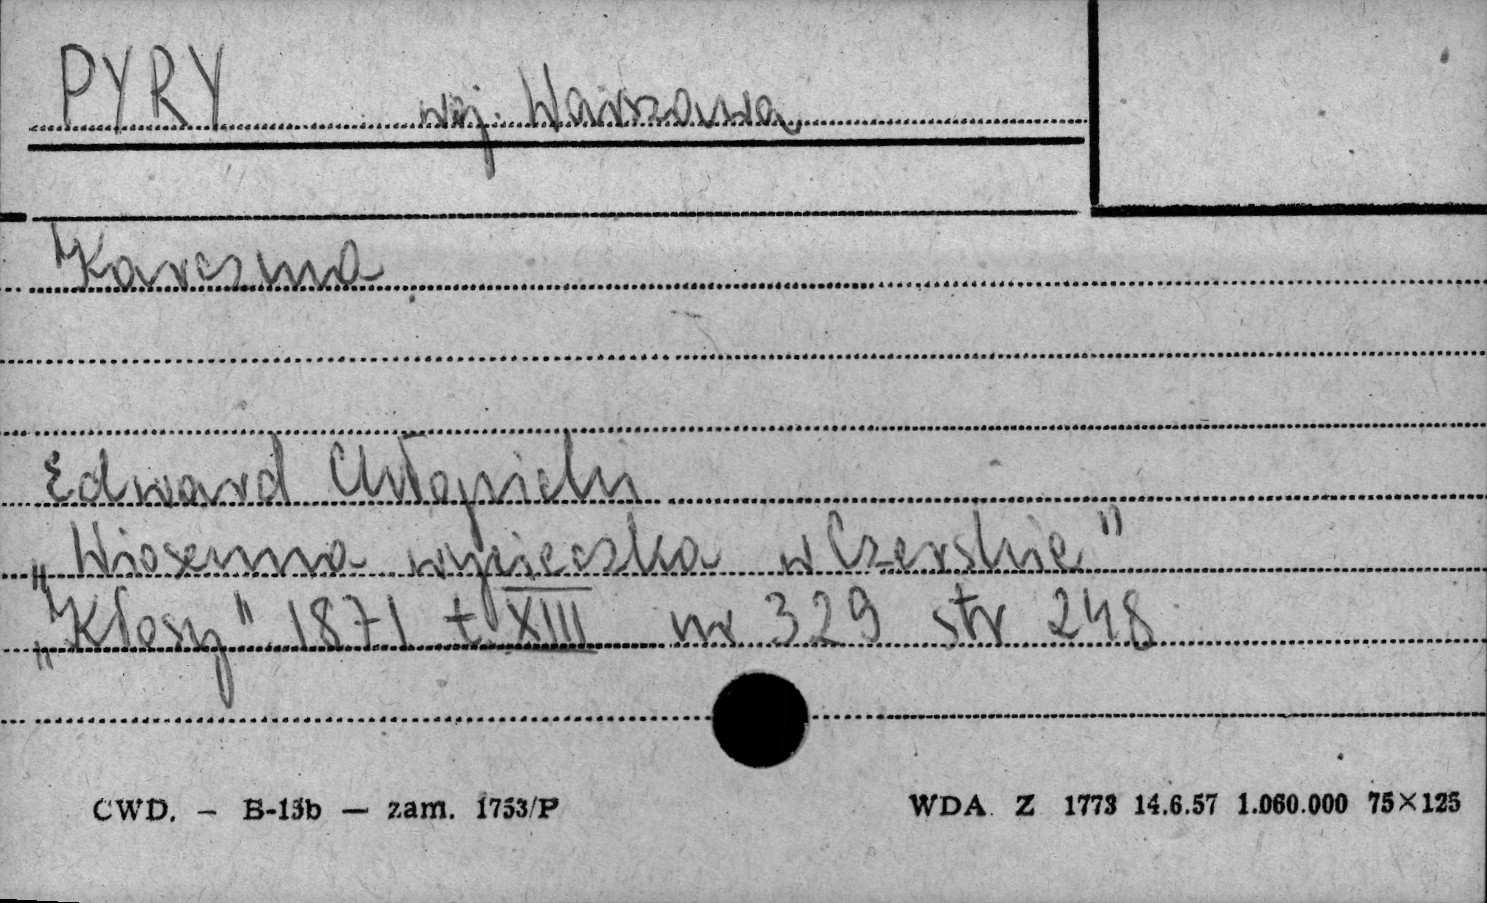 PYRY woj. Warszawa
Karczma
Edward Chłopicki
„Wiosenna wycieczka w Czerskie"
„Kłosy" 1871 t. XIII nr 329 str 248
CWD. — B-13b — zam. 1753/P
WDA Z 1773 14.6.57 1.060.000 75×125